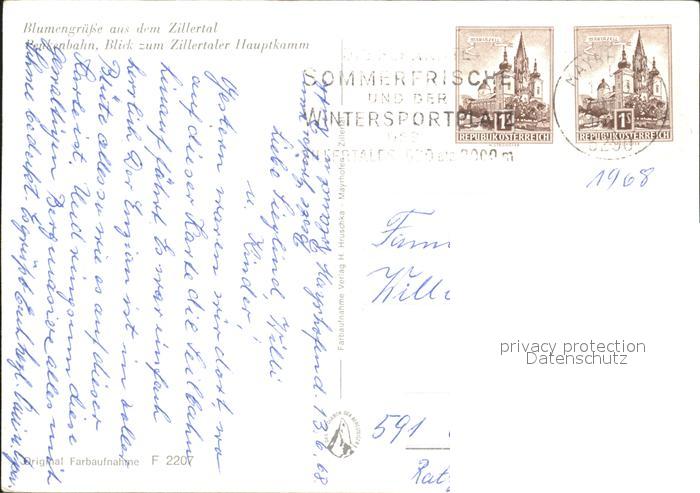 Blumengrüße aus dem Zillertal
Penkenbahn, Blick zum Zillertaler Hauptkamm
MARIAZELL
1S
REPUBLIK ÖSTERREICH
MARIAZELL
1S
REPUBLIK ÖSTERREICH
SOMMERFRISCHE
UND DER
WINTERSPORTPLATZ
DES
ZILLERTALES 630 bis 2000 m
1968
Mayrhofen d. 13.6.68
Liebe Sieglind, Willi
u. Kinder!
Gestern waren wir dort, wo
auf dieser Karte die Seilbahn
hinauf fährt. Es war einfach
herrlich. Der Enzian ist in voller
Blüte alles so wie es auf dieser
Karte ist. Und ringsum diese
gewaltigen Bergmassive alles mit
Schnee bedeckt. Es grüßt Euch
Farbaufnahme Verlag H. Hruschka - Mayrhofen Ziller
Fam
Will
591
Rat
Original Farbaufnahme F 2207
privacy protection
Datenschutz